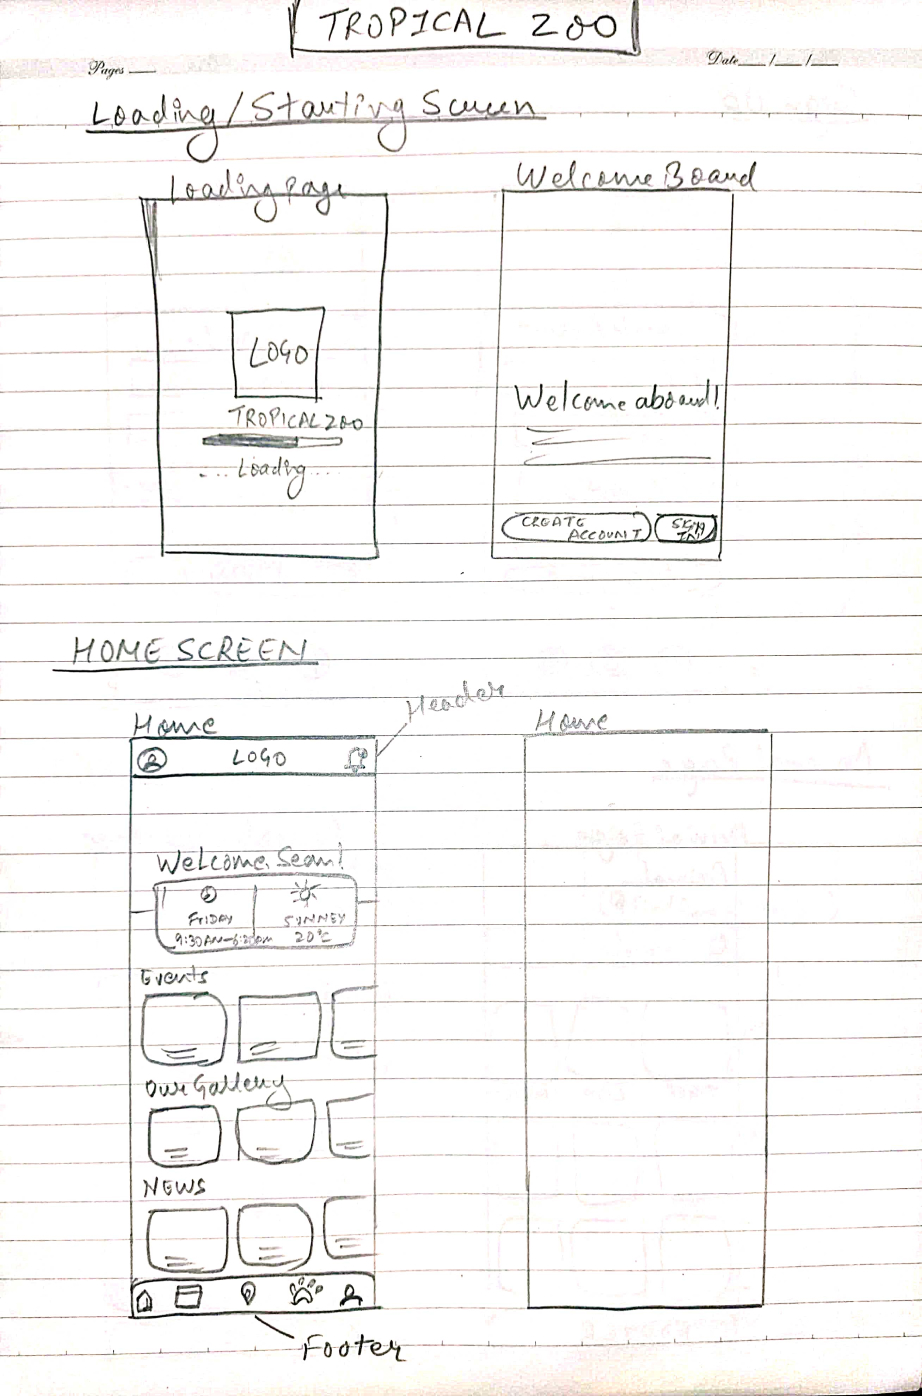 TROPICAL ZOO
Pages
Date / /
Loading/Starting Screen
Loading page
Welcome Board
LOGO
TROPICAL ZOO
... Loading...
Welcome aboard!
CREATE
ACCOUNT
SIGN
IN
HOME SCREEN
Header
Home
Home
LOGO
Welcome, Sean!
FRIDAY
SUNNEY
9:30AM-6:30PM
20°C
Events
Our Gallery
NEWS
Footer